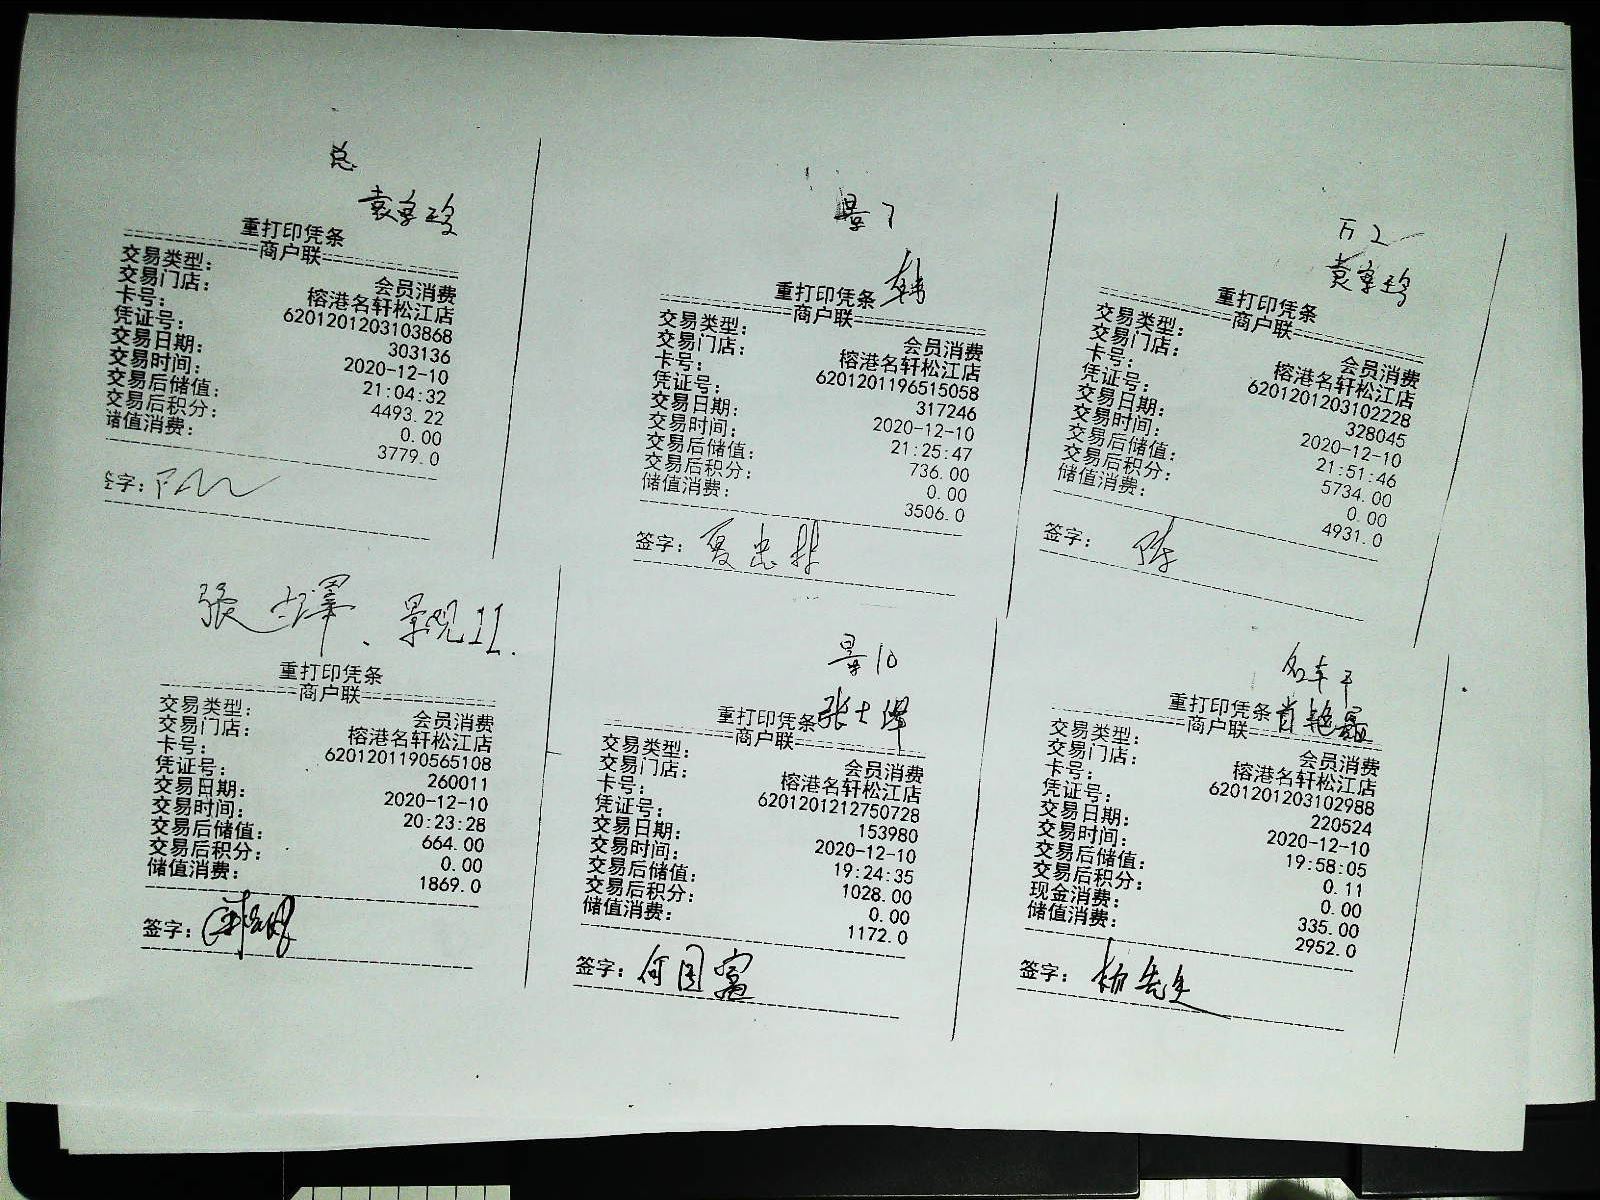 总
重打印凭条
商户联
交易类型: 会员消费
交易门店: 榕港名轩松江店
卡号: 6201201203103868
凭证号: 303136
交易日期: 2020-12-10
交易时间: 21:04:32
交易后储值: 4493.22
交易后积分: 0.00
储值消费: 3779.0
签字:
景7
韩
重打印凭条
商户联
交易类型: 会员消费
交易门店: 榕港名轩松江店
卡号: 6201201196515058
凭证号: 317246
交易日期: 2020-12-10
交易时间: 21:25:47
交易后储值: 736.00
交易后积分: 0.00
储值消费: 3506.0
签字:
重打印凭条
商户联
交易类型: 会员消费
交易门店: 榕港名轩松江店
卡号: 6201201203102228
凭证号: 328045
交易日期: 2020-12-10
交易时间: 21:51:46
交易后储值: 5734.00
交易后积分: 0.00
储值消费: 4931.0
签字: 陈
景观11.
重打印凭条
商户联
交易类型: 会员消费
交易门店: 榕港名轩松江店
卡号: 6201201190565108
凭证号: 260011
交易日期: 2020-12-10
交易时间: 20:23:28
交易后储值: 664.00
交易后积分: 0.00
储值消费: 1869.0
签字:
景10
重打印凭条
商户联
交易类型: 会员消费
交易门店: 榕港名轩松江店
卡号: 6201201212750728
凭证号: 153980
交易日期: 2020-12-10
交易时间: 19:24:35
交易后储值: 1028.00
交易后积分: 0.00
储值消费: 1172.0
签字: 何国富
重打印凭条
商户联
交易类型: 会员消费
交易门店: 榕港名轩松江店
卡号: 6201201203102988
凭证号: 220524
交易日期: 2020-12-10
交易时间: 19:58:05
交易后储值: 0.11
交易后积分: 0.00
现金消费: 335.00
储值消费: 2952.0
签字: 杨先生